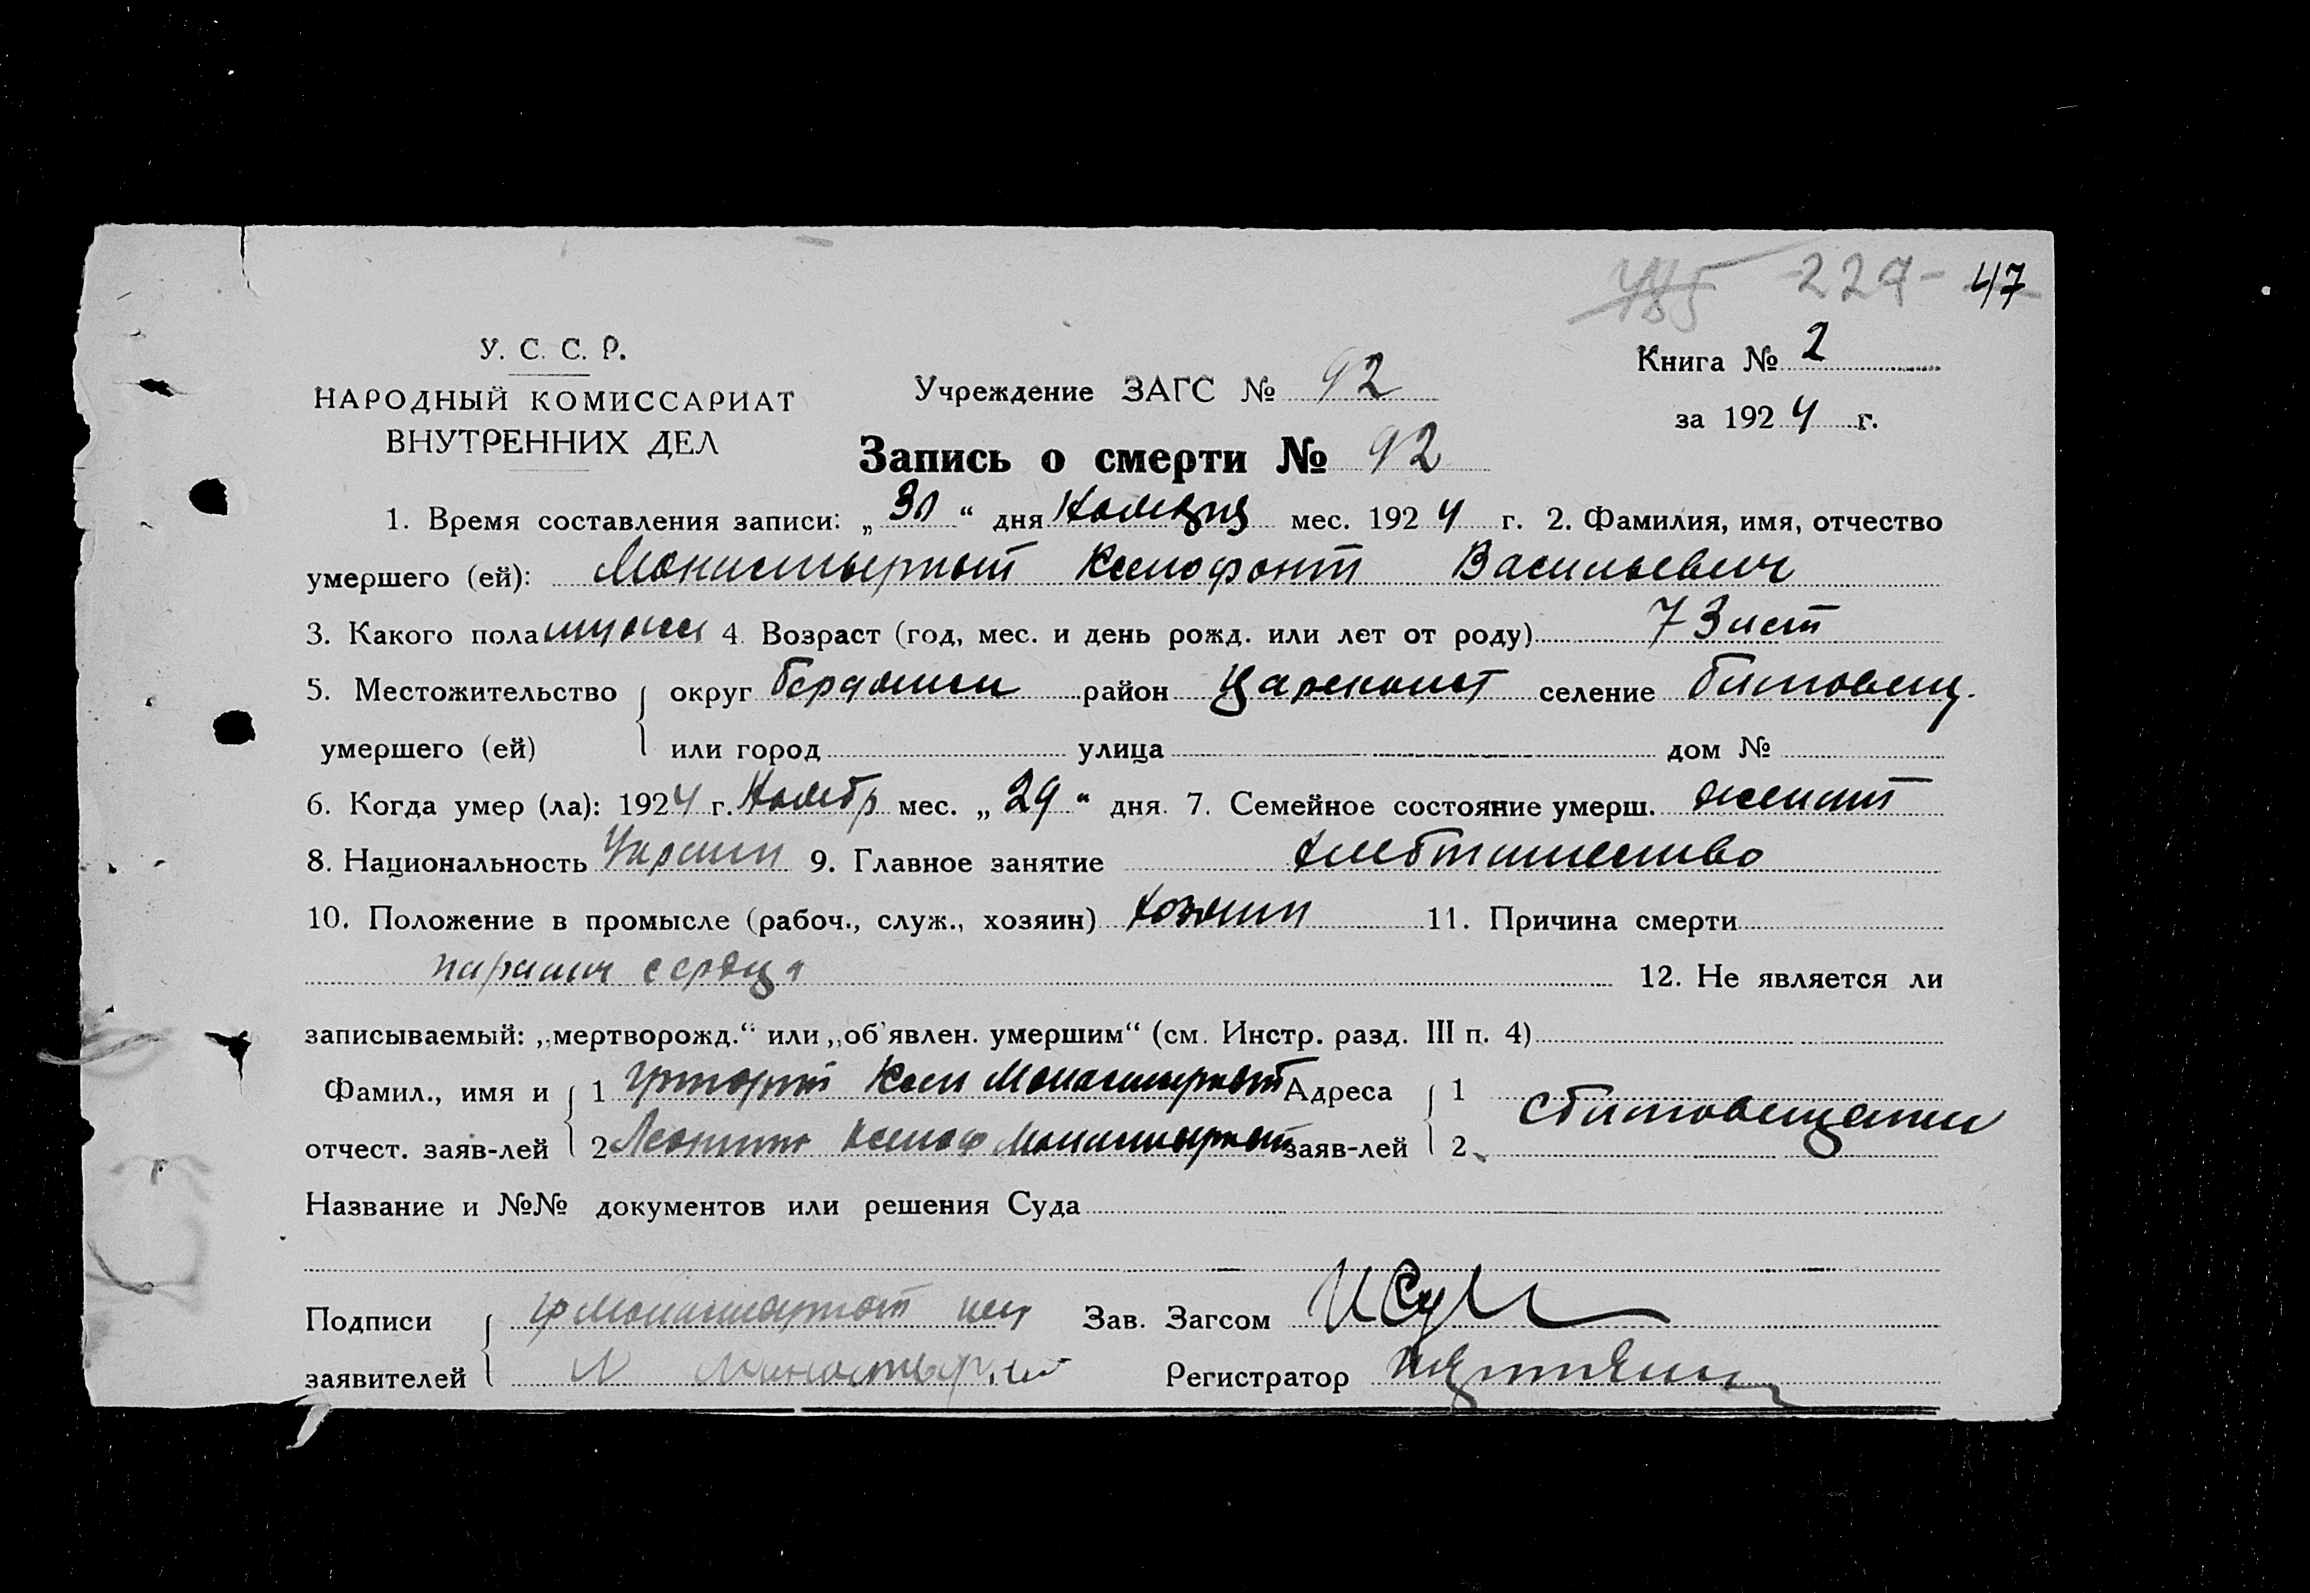 485 -227- 47
У. С. С. Р.
НАРОДНЫЙ КОМИССАРИАТ
ВНУТРЕННИХ ДЕЛ
Учреждение ЗАГС № 92
Книга № 2
за 1924 г.
Запись о смерти № 92
1. Время составления записи: „30“ дня Ноября мес. 1924 г. 2. Фамилия, имя, отчество
умершего (ей): Монастырный Ксенофонт Васильевич
3. Какого пола мужск 4. Возраст (год, мес. и день рожд. или лет от роду) 73 лет
5. Местожительство умершего (ей) { округ Бердянск район Цареконст селение
или город улица дом №
6. Когда умер (ла): 1924 г. Ноябр мес. „29“ дня. 7. Семейное состояние умерш. женат
8. Национальность Украин 9. Главное занятие хлебопашество
10. Положение в промысле (рабоч., служ., хозяин) хозяин 11. Причина смерти
паралич сердца 12. Не является ли
записываемый: „мертворожд.“ или „об'явлен. умершим“ (см. Инстр. разд. III п. 4)
Фамил., имя и отчест. заяв-лей { 1 Григорий Ксен Монастырный Адреса заяв-лей { 1
2 Ксеноф Монастырный 2
Название и №№ документов или решения Суда
Подписи заявителей { Монастырный Зав. Загсом
Регистратор